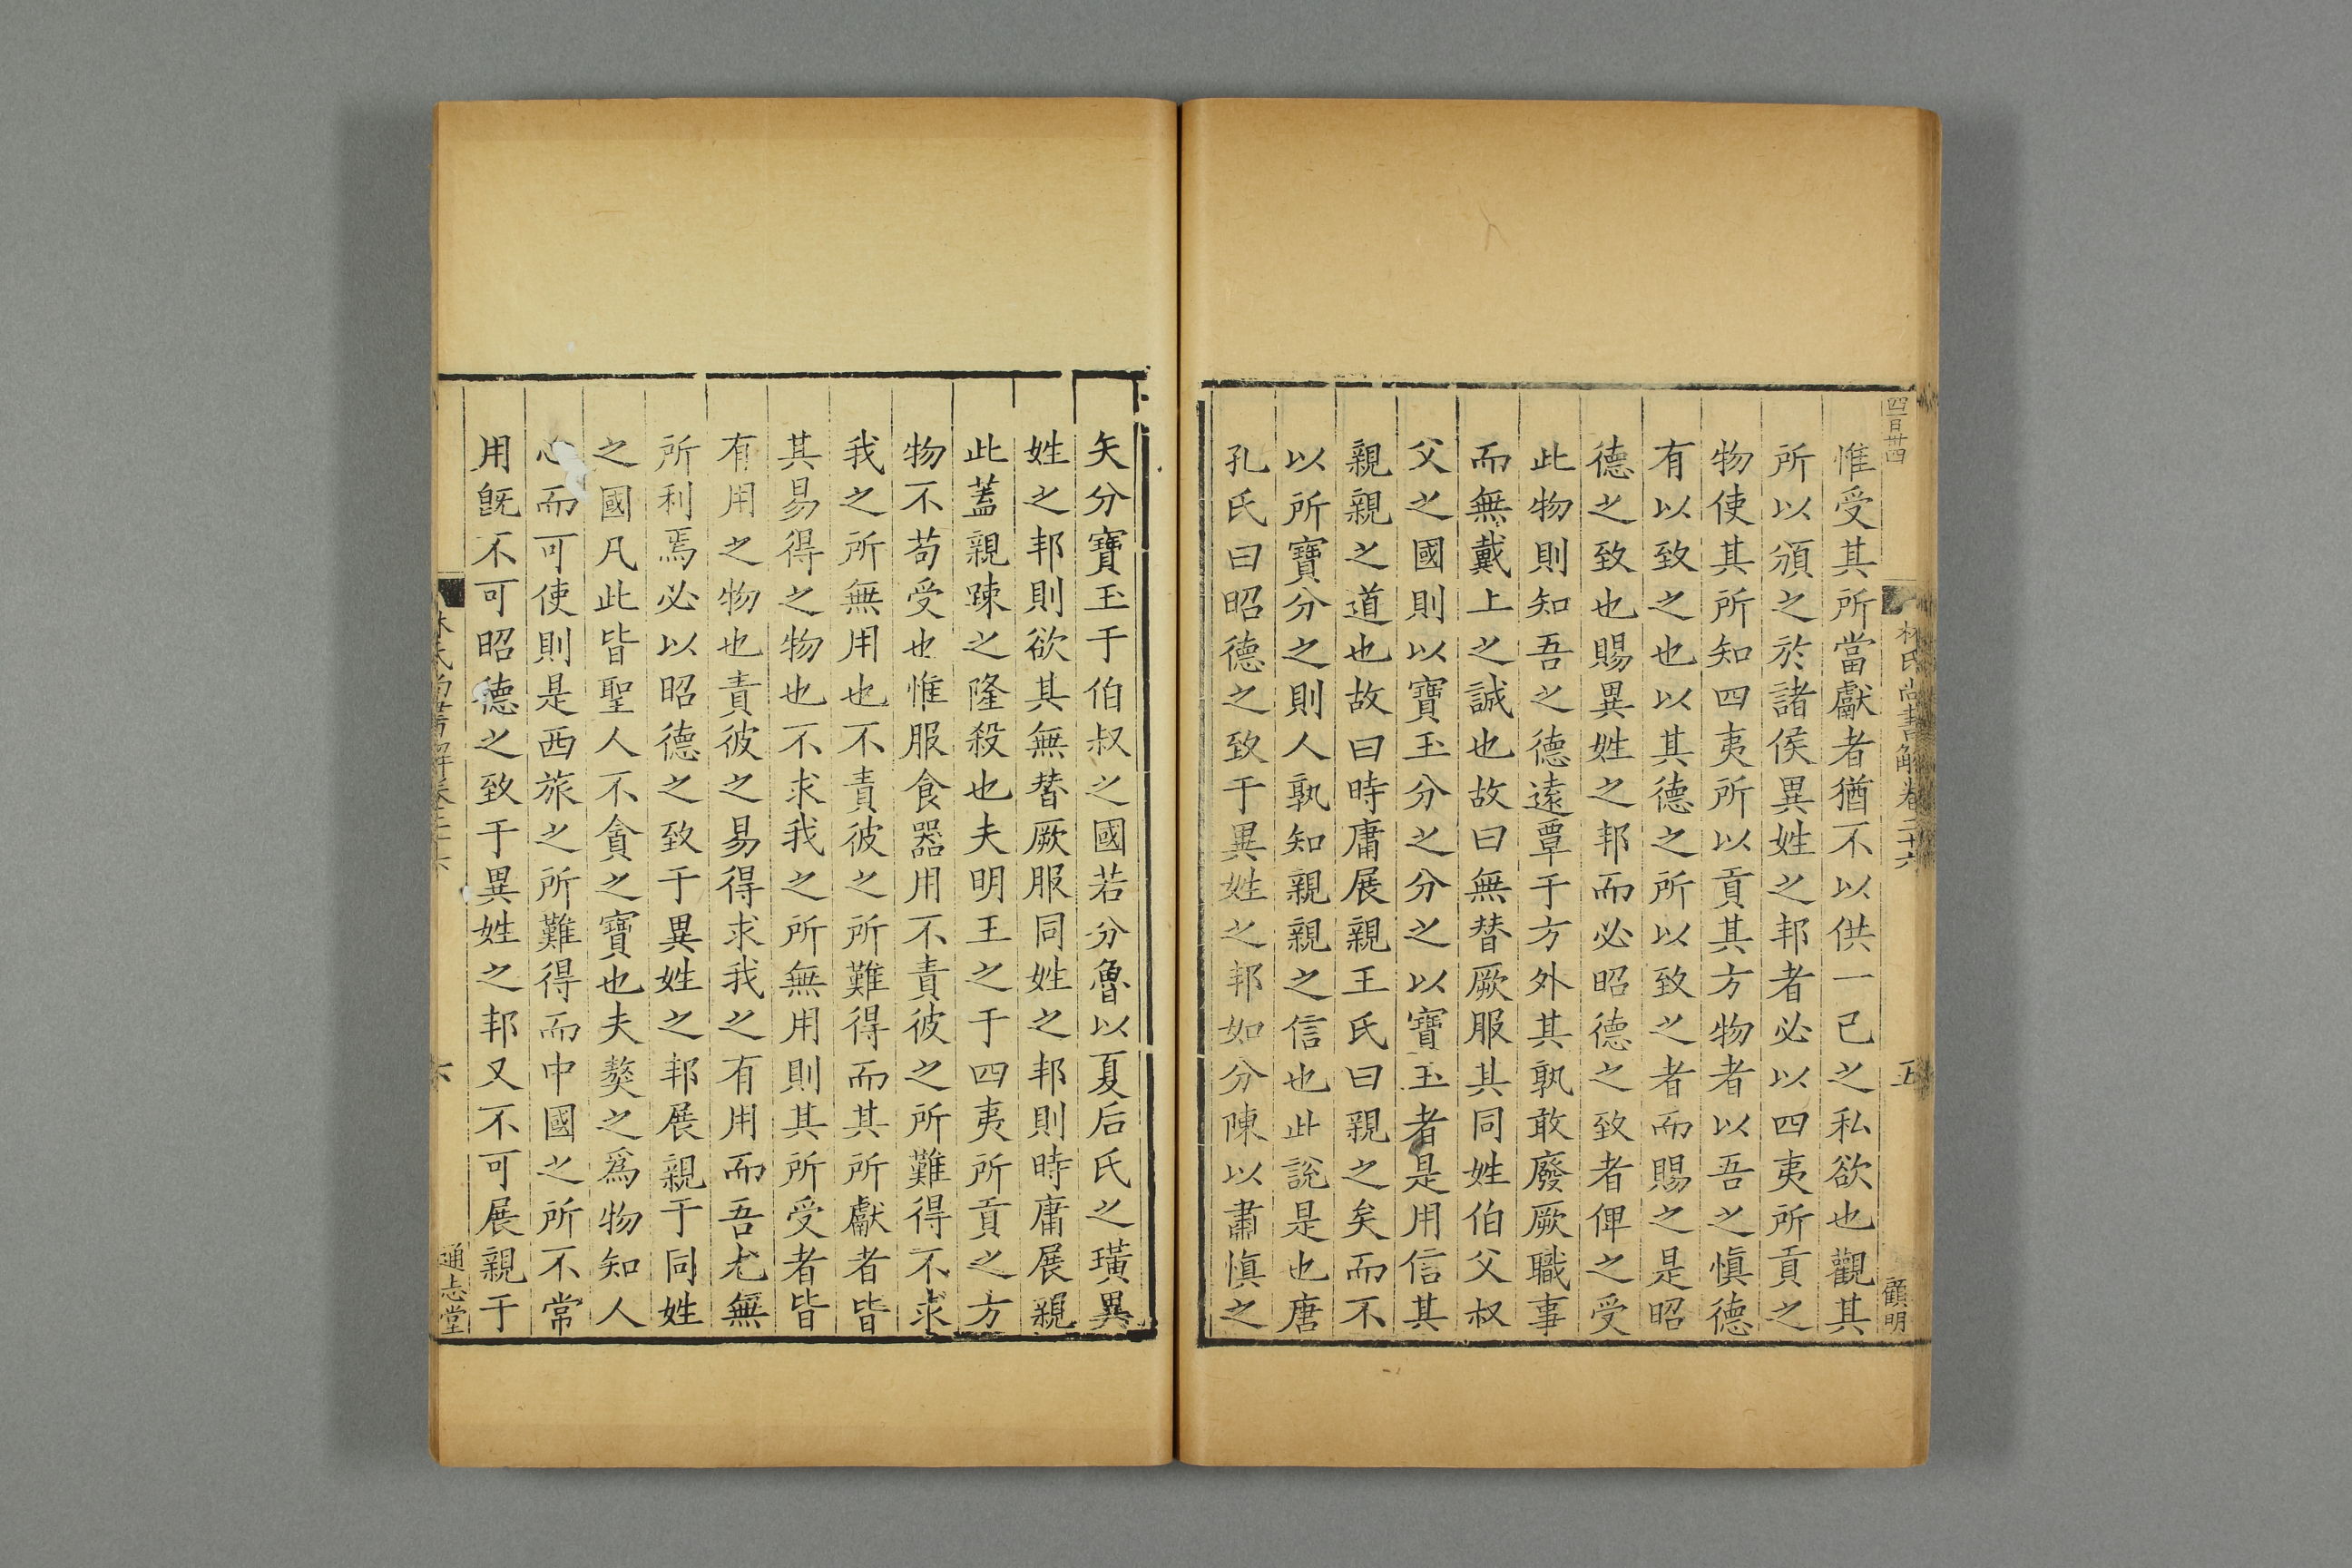 四百卅四
林氏尚書解卷二十六
五
顧明
惟受其所當獻者猶不以供一己之私欲也觀其
所以頒之於諸侯異姓之邦者必以四夷所貢之
物使其所知四夷所以貢其方物者以吾之慎德
有以致之也以其德之所以致之者而賜之是昭
德之致也賜異姓之邦而必昭德之致者俾之受
此物則知吾之德遠覃于方外其孰敢廢厥職事
而無戴上之誠也故曰無替厥服其同姓伯父叔
父之國則以寶玉分之分之以寶玉者是用信其
親親之道也故曰時庸展親王氏曰親之矣而不
以所寶分之則人孰知親親之信也此說是也唐
孔氏曰昭德之致于異姓之邦如分陳以肅慎之
矢分寶玉于伯叔之國若分魯以夏后氏之璜異
姓之邦則欲其無替厥服同姓之邦則時庸展親
此蓋親疎之隆殺也夫明王之于四夷所貢之方
物不苟受也惟服食器用不責彼之所難得不求
我之所無用也不責彼之所難得而其所獻者皆
其易得之物也不求我之所無用則其所受者皆
有用之物也責彼之易得求我之有用而吾尤無
所利焉必以昭德之致于異姓之邦展親于同姓
之國凡此皆聖人不貪之寶也夫獒之為物知人
心而可使則是西旅之所難得而中國之所不常
用旣不可昭德之致于異姓之邦又不可展親于
林氏尚書解卷二十六
六
通志堂